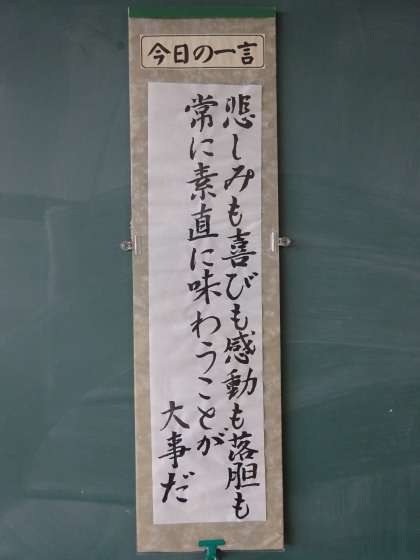 今日の一言
悲しみも喜びも感動も落胆も
常に素直に味わうことが
大事だ